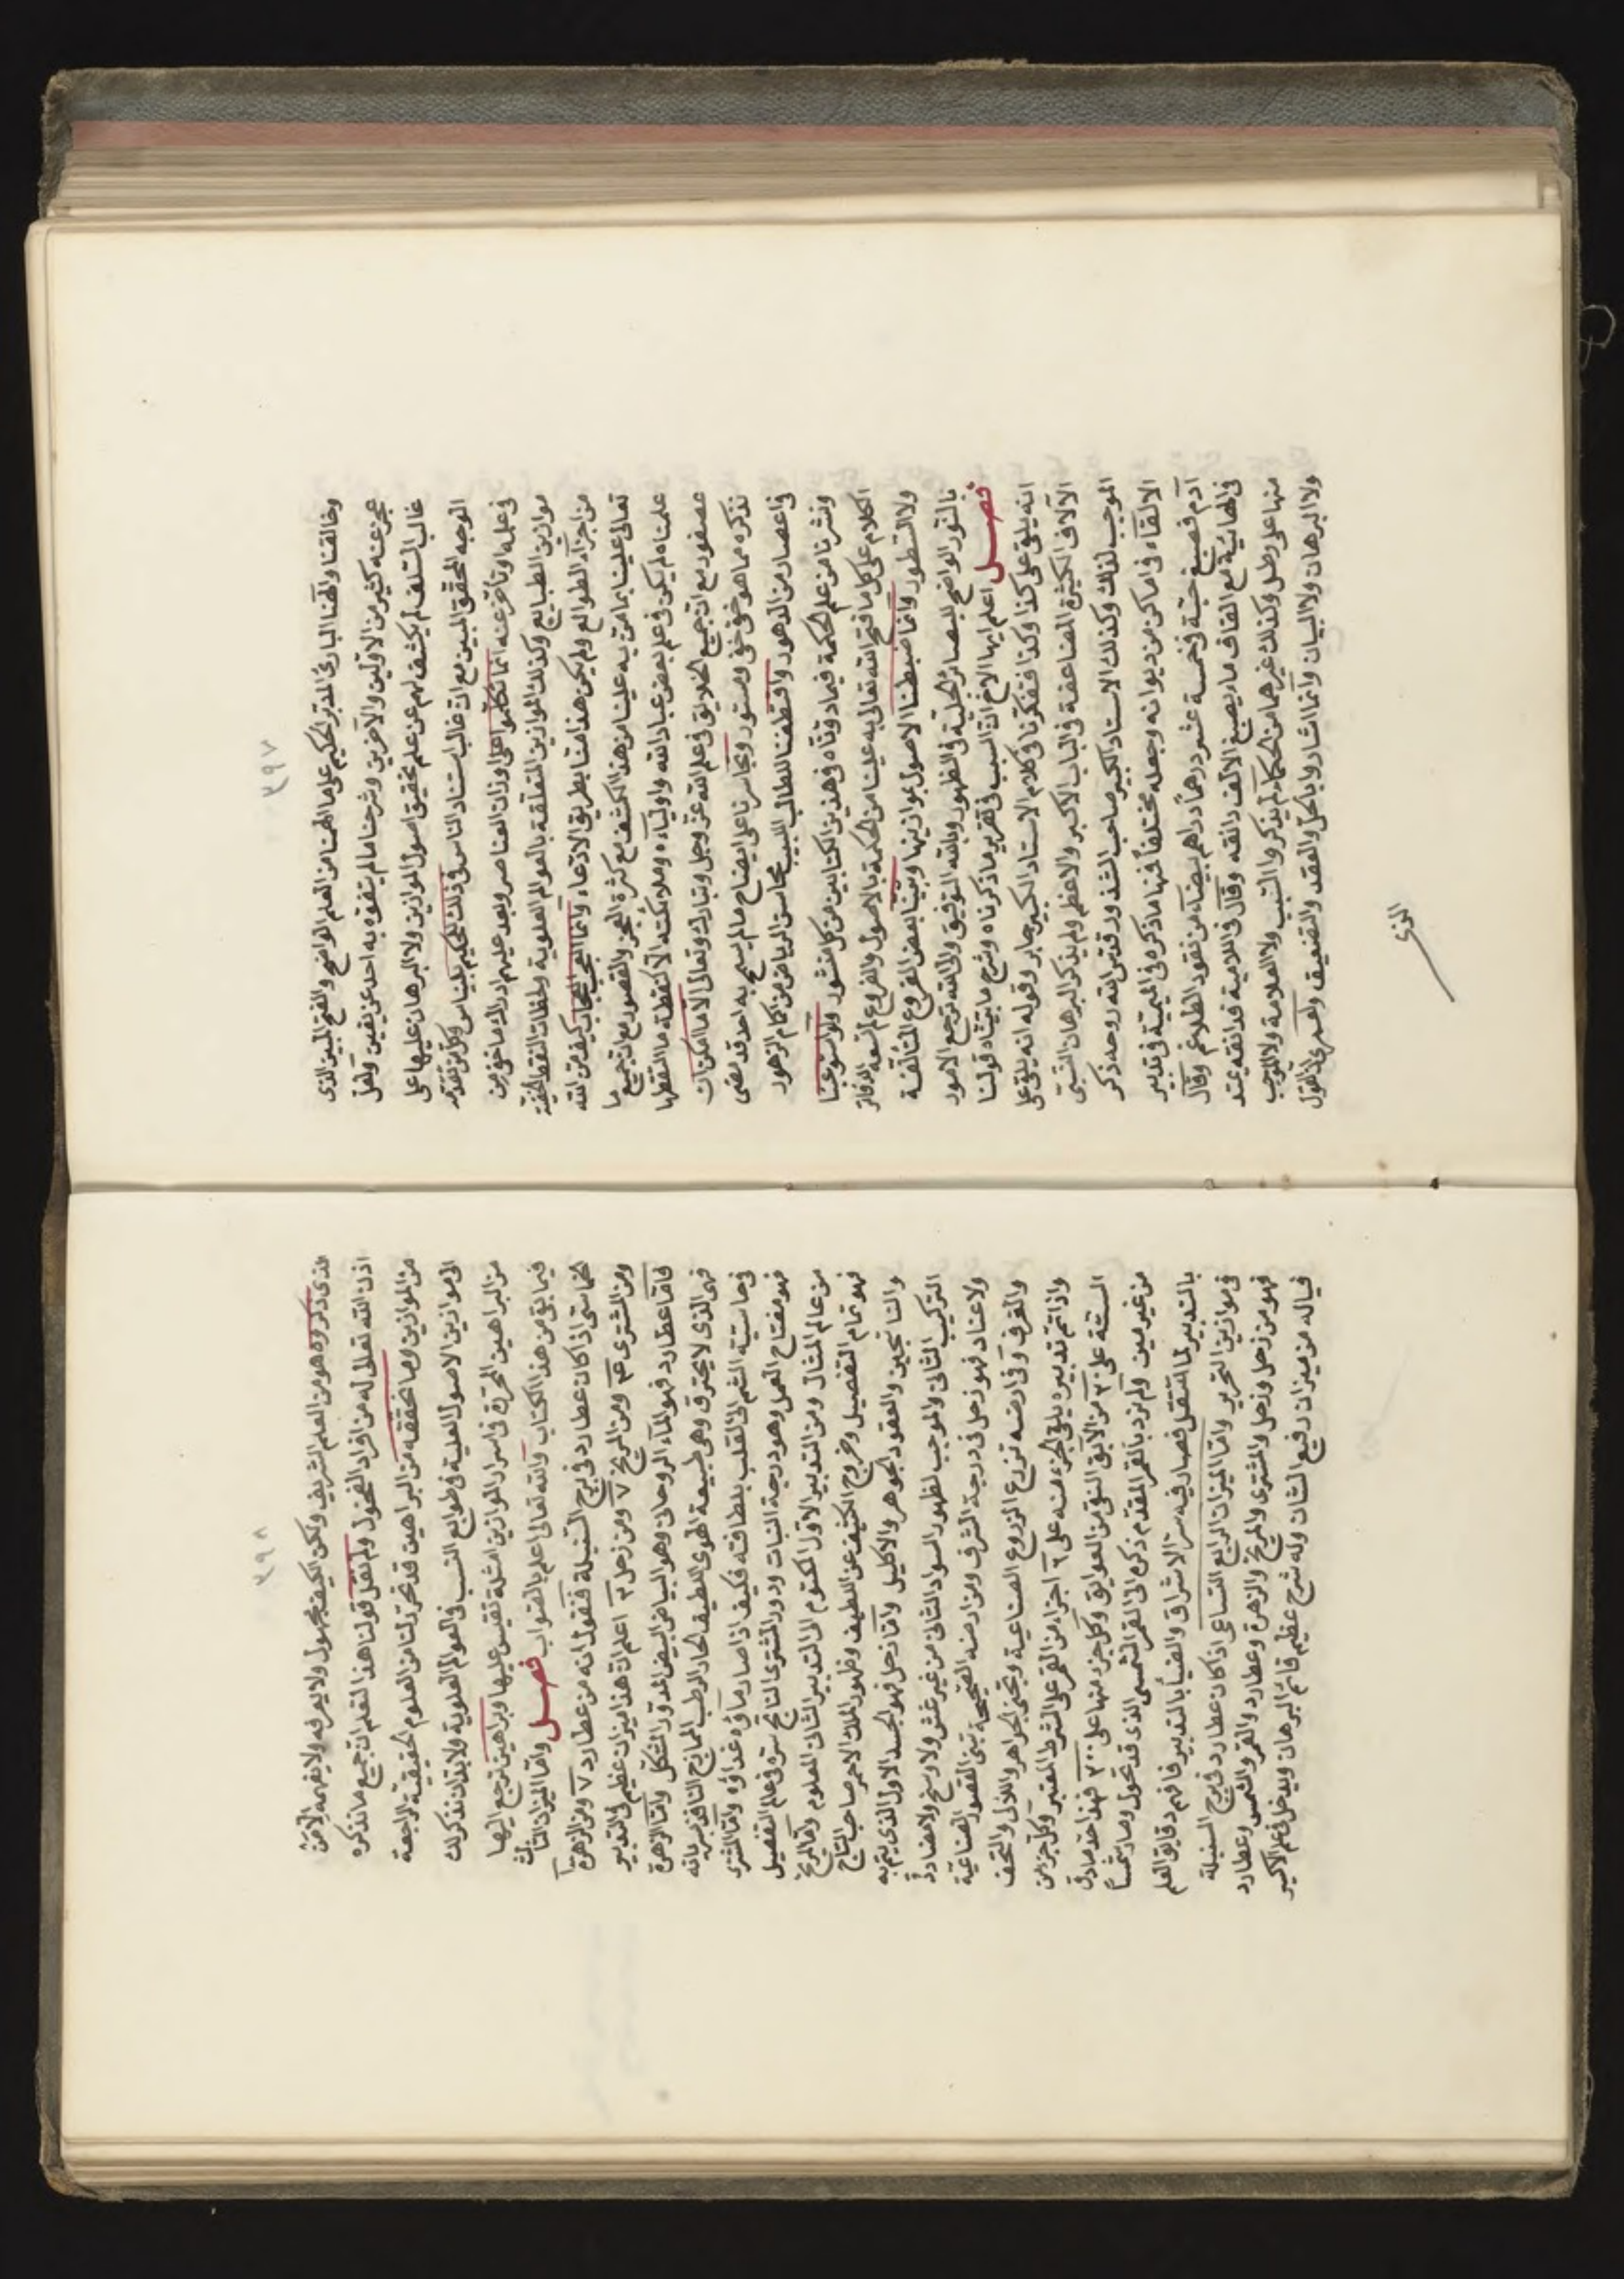 ٣٩٧
وخالقنا والهنا البارئ المدبر الحكيم على ما الهمنا من العلم الواضح والفتح المبين الذى
عجز عنه كثير من الاولين والآخرين وشرحنا ما لم يتفوه به احد عن يقين ولعل
غالب السلف لم يكشف لهم عن علم تحقيق اصول الموازين ولا البرهان عليها على
الوجه المحقق المبين مع ان غالب استناد الناس فى ذلك لحكيم بليناس وكل من تقدم
فى علمه او تأخر عنه انما تكلموا على اوزان العناصر وبعد عليهم ادراك ما خفى من
موازين الطبايع وكذلك الموازين المتعلقة بالعوالم العلوية ولحظات النقط الخفية
من اجزاء الطوالع ولم يكن هذا منا بطريق الادعاء وانما العجب العجاب كيف منّ الله
تعالى علينا بما منّ به علينا من هذا الكشف مع كثرة العجز والقصور مع ان جميع ما
علمناه لم يكن فى علم بعض عباد الله واولياءه وملائكته الا كنقطة مما التقطها
عصفور مع ان جميع الخلايق فى علم الله عز وجل وتبارك وتعالى الا ما امكن ان
نذكره مما هو خفى خفى ومستور وتجاسرنا على ايضاح ما لم يسمح به احد قد مضى
فى اعصار من الدهور واقتطفنا للطالب اللبيب محاسن الرياض من اكمام الزهور
ونشرنا من علم الحكمة فيما دوناه فى هذين الكتابين من كل منثور ولو استوعبنا
الكلام على كل ما فتح الله تعالى به علينا من الحكمة بالاصول والفروع لم تسعه الدفاتر
ولا السطور وانما ضبطنا الاصول بموازينها وبينا بعض الفروع المتألفة
بالنور الواضح للبصائر الجلية فى الظهور وبالله التوفيق والى الله ترجع الامور
فصل اعلم ايها الاخ ان السبب فى تقرير ما ذكرناه وشرح ما بيناه قولنا
انه يلقى على كذا وكذا ففكرنا فى كلام الاستاد الكبير جابر وقوله انه يلقى على
الآلاف الكثيرة المضاعفة فى الباب الاكبر والاعظم ولم يذكر البرهان النسبى
الموجب لذلك وكذلك الاستاد الكبير صاحب الشذور قدس الله روحه ذكر
الالقاء فى اماكن من ديوانه وجعله مختلفاً فمنها ما ذكره فى الميمية فى تدبير
آدم فصبغ حبة فى خمسة عشر درهماً دراهم بيضاء من نقود الطلاغم وقال
فى الهائية مع القاف ماء يصبغ الالف دانقه وقال فى اللامية فدانقه يمتد
منها على رطل وكذلك غيرهما من الحكماء لم يذكروا السبب ولا العلامة ولا الموجب
ولا البرهان ولا البيان وانما اشاروا بالحل والعقد والتضعيف واقتصر على القول
الذى
٣٩٨
الذى ذكروه هو من العلم الشريف ولكن الكيف مجهول ولا يعرفه ولا يفهمه الا من
اذن الله تعالى له من افراد الفحول ولم نقل قولنا هذا لتعلم ان جميع ما نذكره
من الموازين وما نحققه من البراهين قد تحرر لنا من العلوم الحقيقية الراجعة
الى موازين الاصول العلية فى طوابع النسب فى العوالم العلوية ولا بد ان نذكر لك
من البراهين المحررة فى اسرار الموازين امثلة تقيس عليها وبراهين ترجع اليها
فيما بقى من هذا الكتاب والله تعالى اعلم بالصواب فصل واما الميزان الثالث
الخماسى اذا كان عطارد فى برج السنبلة فنقول انه من عطارد ٧ ومن الزهرة
ومن المشترى ومن المريخ ٧ ومن زحل ٣ اعلم ان هذا ميزان عظيم فى التدبير
فاما عطارد فهو الماء الروحانى وهو البياض البيض المدور الشكل واما الزهرة
فهى الذى لا يحترق وهى طبيعة الهوى اللطيف الحار الرطب الممازج النافذ سريانه
فى حاستية الشم الى القلب بلطافته فكيف اذا صار ماؤه غذاؤه واما المشترى
فهو مفتاح العمل وهو درجة النبات ودور المشترى الناتج سره فى علم التفصيل
من عالم المثال ومن التدبير الاول المكتوم الى التدبير الثانى المعلوم واما المريخ
فهو تمام التفصيل وخروج الكثيف عن اللطيف وظهور الملك الاحمر صاحب التاج
والتا نجين والعقود الجوهر والاكليل واما زحل فهو الجسد الاول الذى يتم به
التركيب الثانى والموجب لظهور السواد الثانى من غير غش ولا وسخ ولا مضاددة
ولا عناد فهو زحل فى درجة الشرف ومن ارضه الصحيحة تبنى القصور الصناعية
والغرف وفى ارضه تزرع الزروع الصناعية وتجنى الجواهر واللآلى والتحف
واذا تم تدبيره يلقى الجزء منه على ٦ اجزاء من القمر على الشرط المعتبر وكل جزء من
الستة على ٣٠ من الآبق النقى من العوايق وكل جزء منها على ٣٠٠ فهذا حد صادق
من غير مين ولم نرد بالقمر المقدم ذكره الى القمر الشمسى الذى قد تحول وصار شمساً
بالتدبير لما انتقل فصار فيه سر الاشراق والضياء بالتدبير فافهم دقايق العلم
فى موازين التحرير واما الميزان الرابع التساعى اذا كان عطارد فى برج السنبلة
فهو من زحل وزحل والمشترى والمريخ والزهرة وعطارد والقمر والشمس وعطارد
فياله من ميزان رفيع الشان وله شرح عظيم قائم البرهان ويدخل فى علم الاكسير